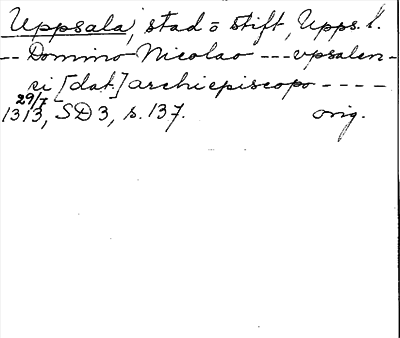 Uppsala, stad o stift, Upps. l.
-- Domino Nicolao --- vpsalen-
si [dat.] archiepiscopo ----
29/7
1313, SD 3, s. 137. orig.